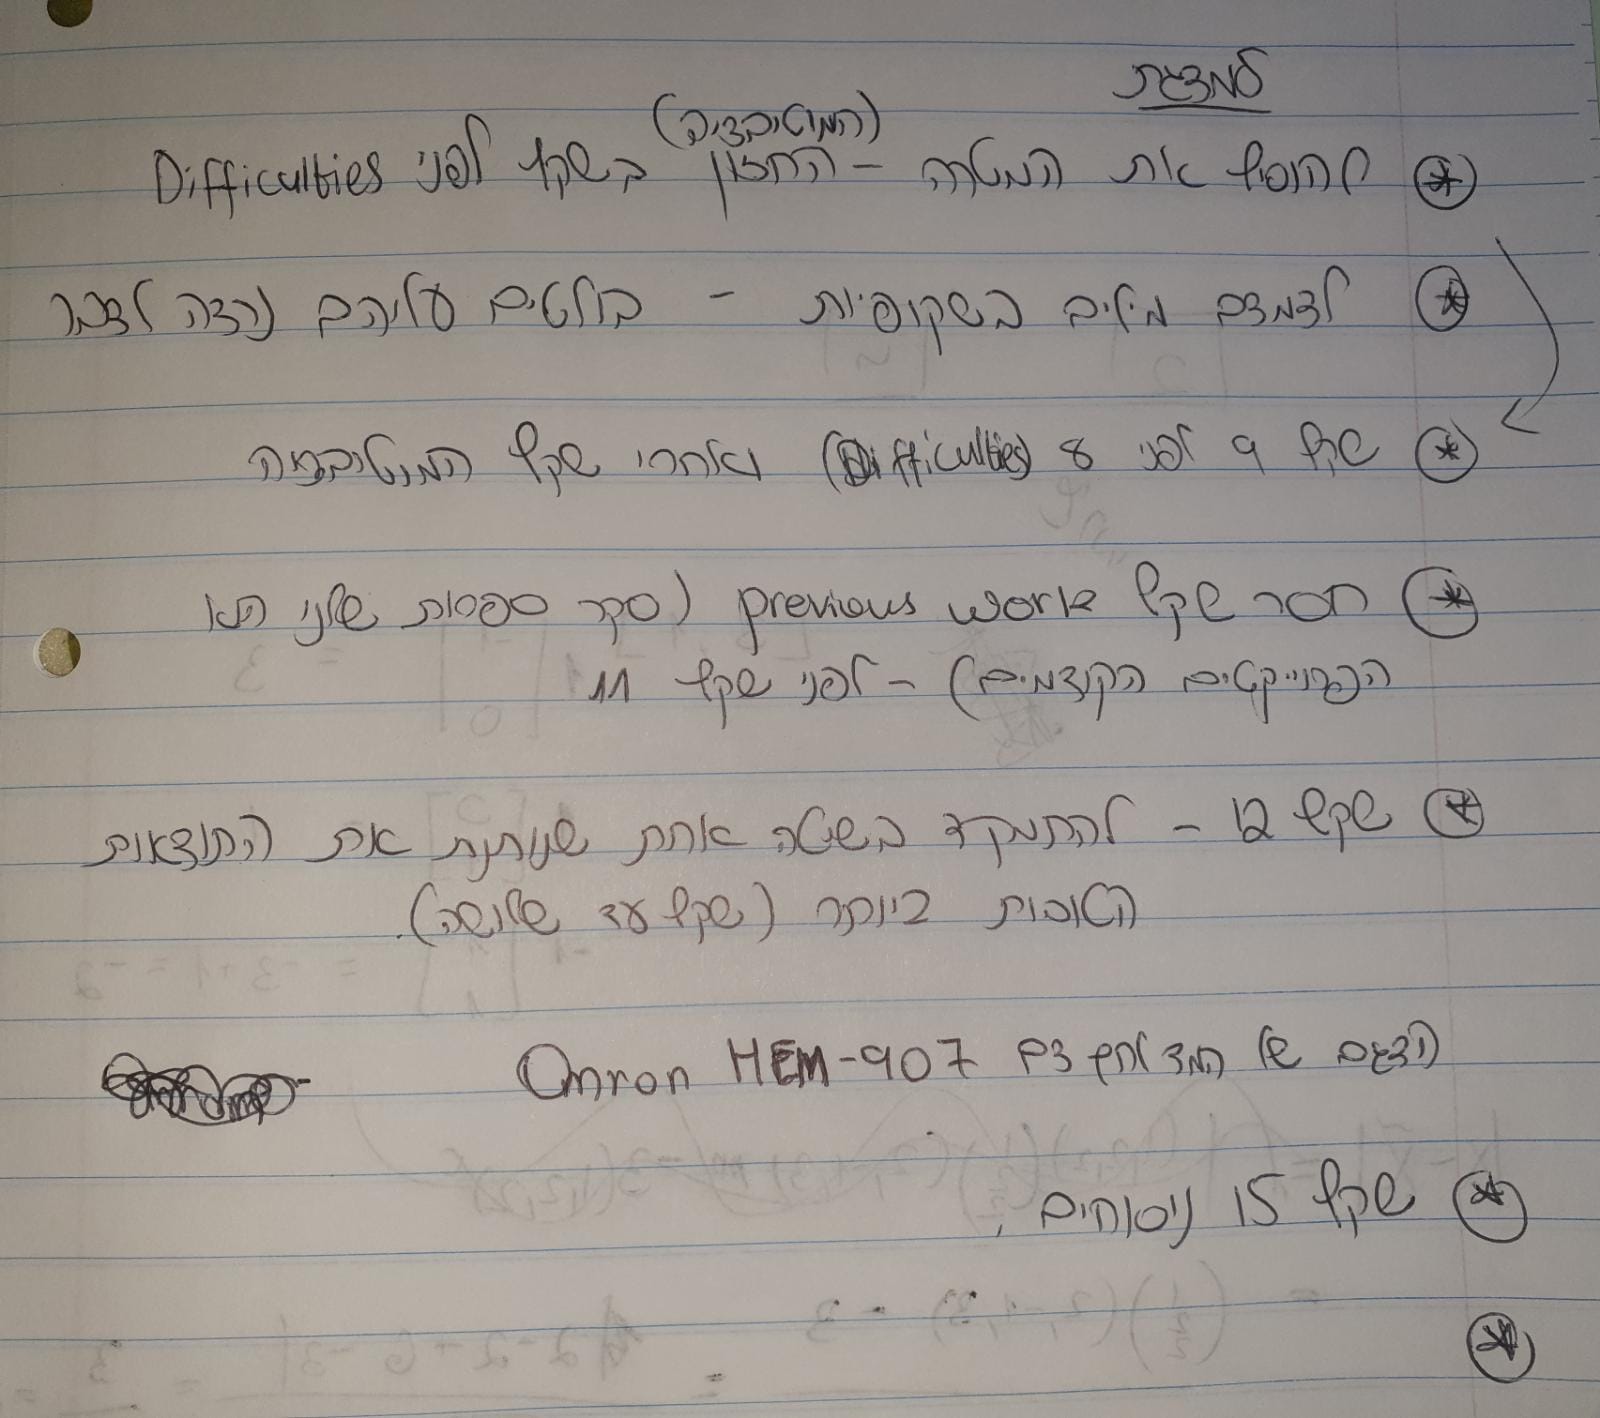 למצגת
(המוטיבציה)
להוסיף את המטרה - החזון בשקף לפני Difficulties
לצמצם מילים בשקופיות - בולטים עליהם נרצה לדבר
שקף 9 לפני 8 (Difficulties) ואחרי שקף המוטיבציה
חסר שקף previous work (סקר ספרות שלנו הוא
הפרוייקטים הקודמים) - לפני שקף 11
שקף 12 - להתמקד בשיטה אחת שנותנת את התוצאות
הטובות ביותר (שקף עד שלושה).
הדגם של המד לחץ דם Omron HEM-907
שקף 15 ניסוחים.